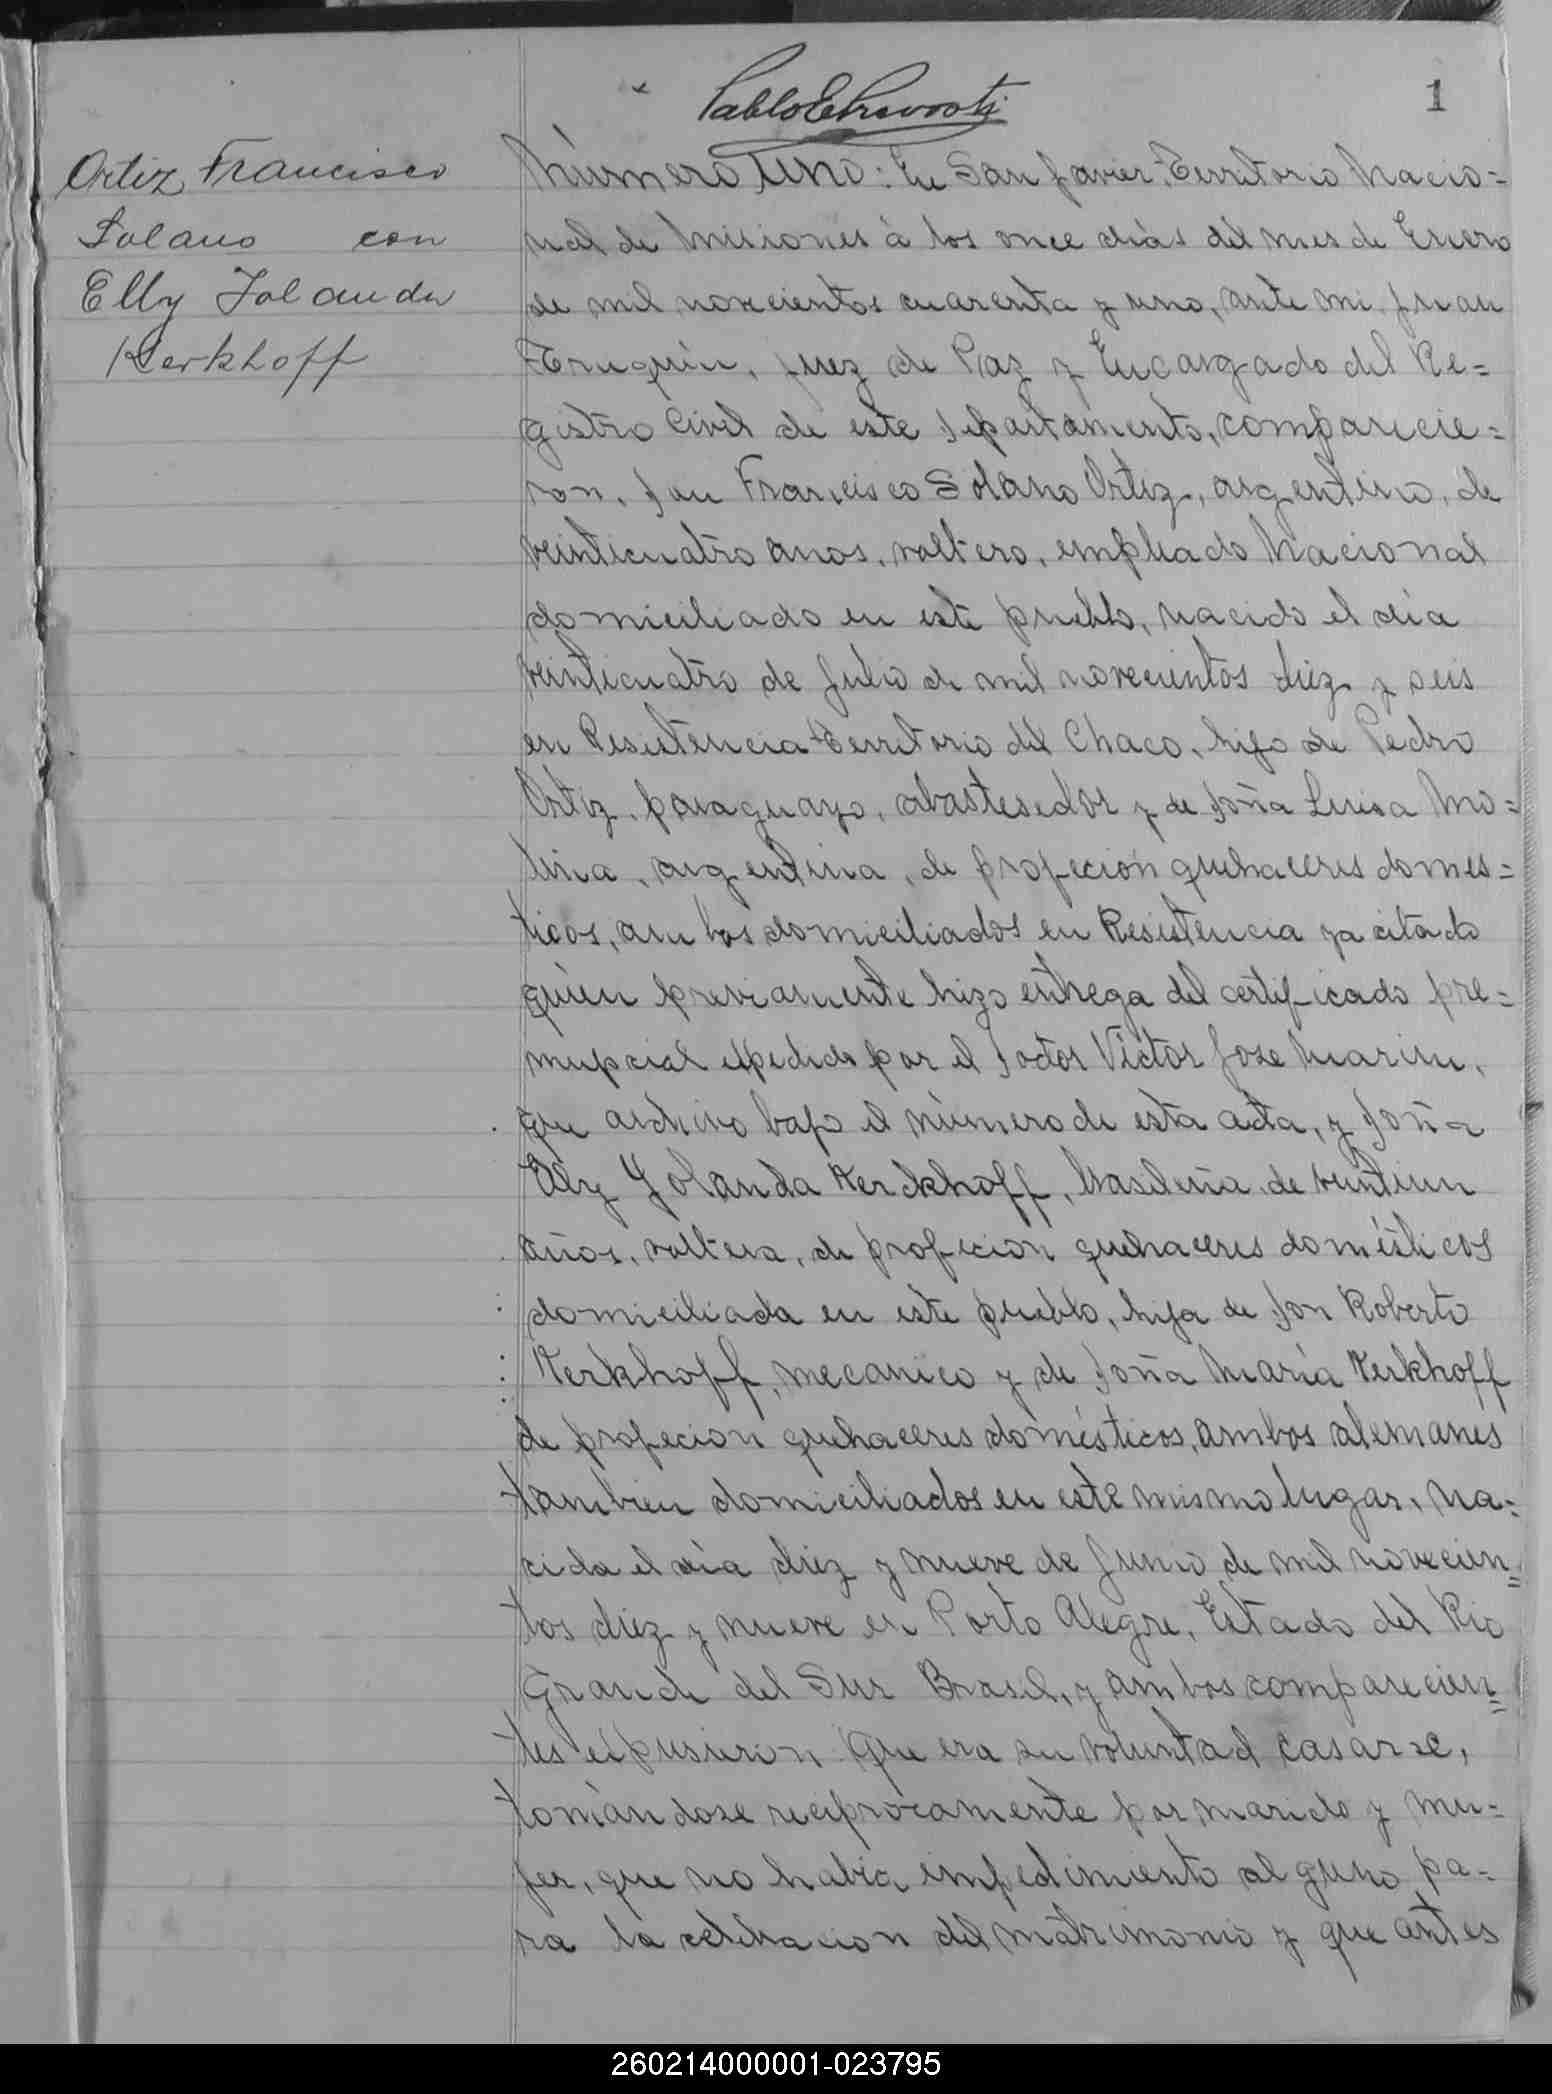 Pablo E Prevosti
1
Ortiz Francisco
Solano con
Elly Jolanda
Kerkhoff
Número Uno: En San Javier, Territorio Nacio=
nal de Misiones á los once días del mes de Enero
de mil novecientos cuarenta y uno, ante mi Juan
Truquin, Juez de Paz y Encargado del Re=
gistro Civil de este Departamento, comparecie=
ron, Don Francisco Solano Ortiz, argentino, de
veinticuatro anos, soltero, empleado Nacional
domiciliado en este pueblo, nacido el día
veinticuatro de Julio de mil novecientos diez y seis
en Resistencia Territorio del Chaco, hijo de Pedro
Ortiz, paraguayo, abastesedor y de Doña Luisa Mo=
lina, argentina, de profecion quehaceres domes=
ticos, ambos domiciliados en Resistencia ya citado
quien previamente hizo entrega del certificado pre=
nupcial expedido por el Doctor Víctor Jose Marin,
que archivo bajo el número de esta acta, y Doña
Elly Yolanda Kerckhoff, brasileña, de veintiun
años, soltera, de profecion quehaceres domésticos
domiciliada en este pueblo, hija de Don Roberto
Kerkhoff, mecanico y de Doña María Kerkhoff
de profecion quehaceres domésticos, ambos alemanes
tambien domiciliados en este mismo lugar, na=
cida el día diez y nueve de Junio de mil novecien=
tos diez y nueve en Porto Alegre, Estado del Rio
Grande del Sur Brasil, y ambos comparecien=
tes expusieron: Que era su voluntad casarse,
tomándose reciprocamente por marido y mu=
jer, que no había impedimiento alguno pa=
ra la celebracion del matrimonio y que antes
260214000001-023795